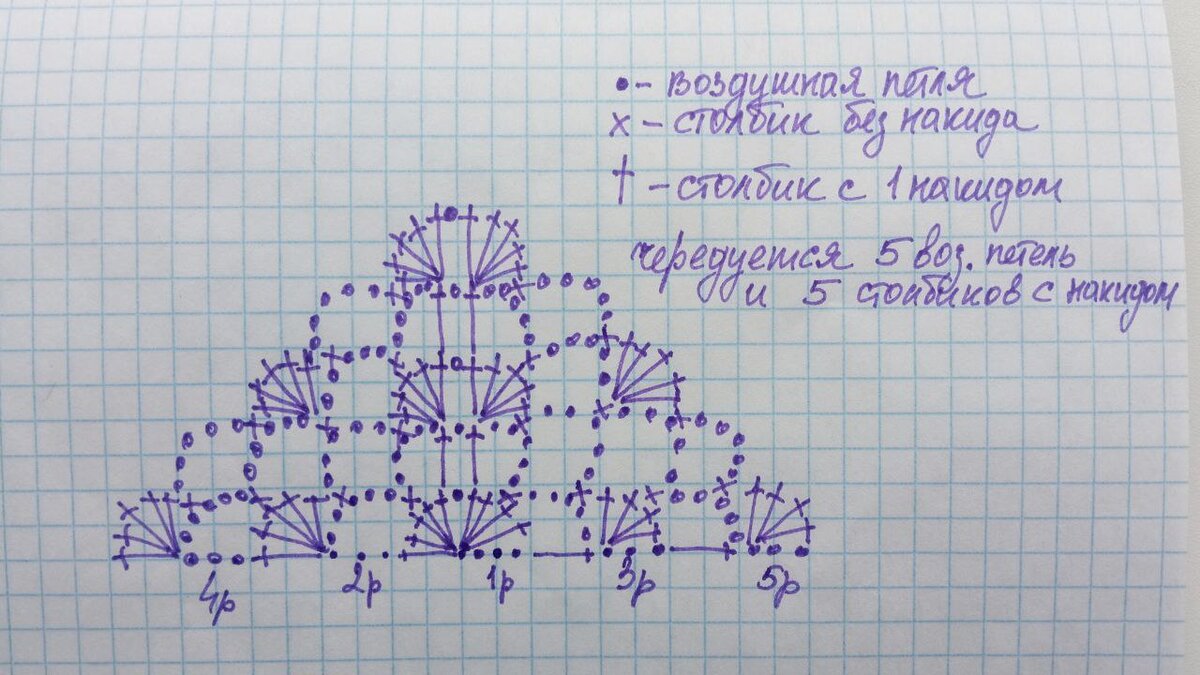 • - воздушная петля
x - столбик без накида
† - столбик с 1 накидом
чередуется 5 воз. петель
и 5 столбиков с накидом
4р 2р 1р 3р 5р